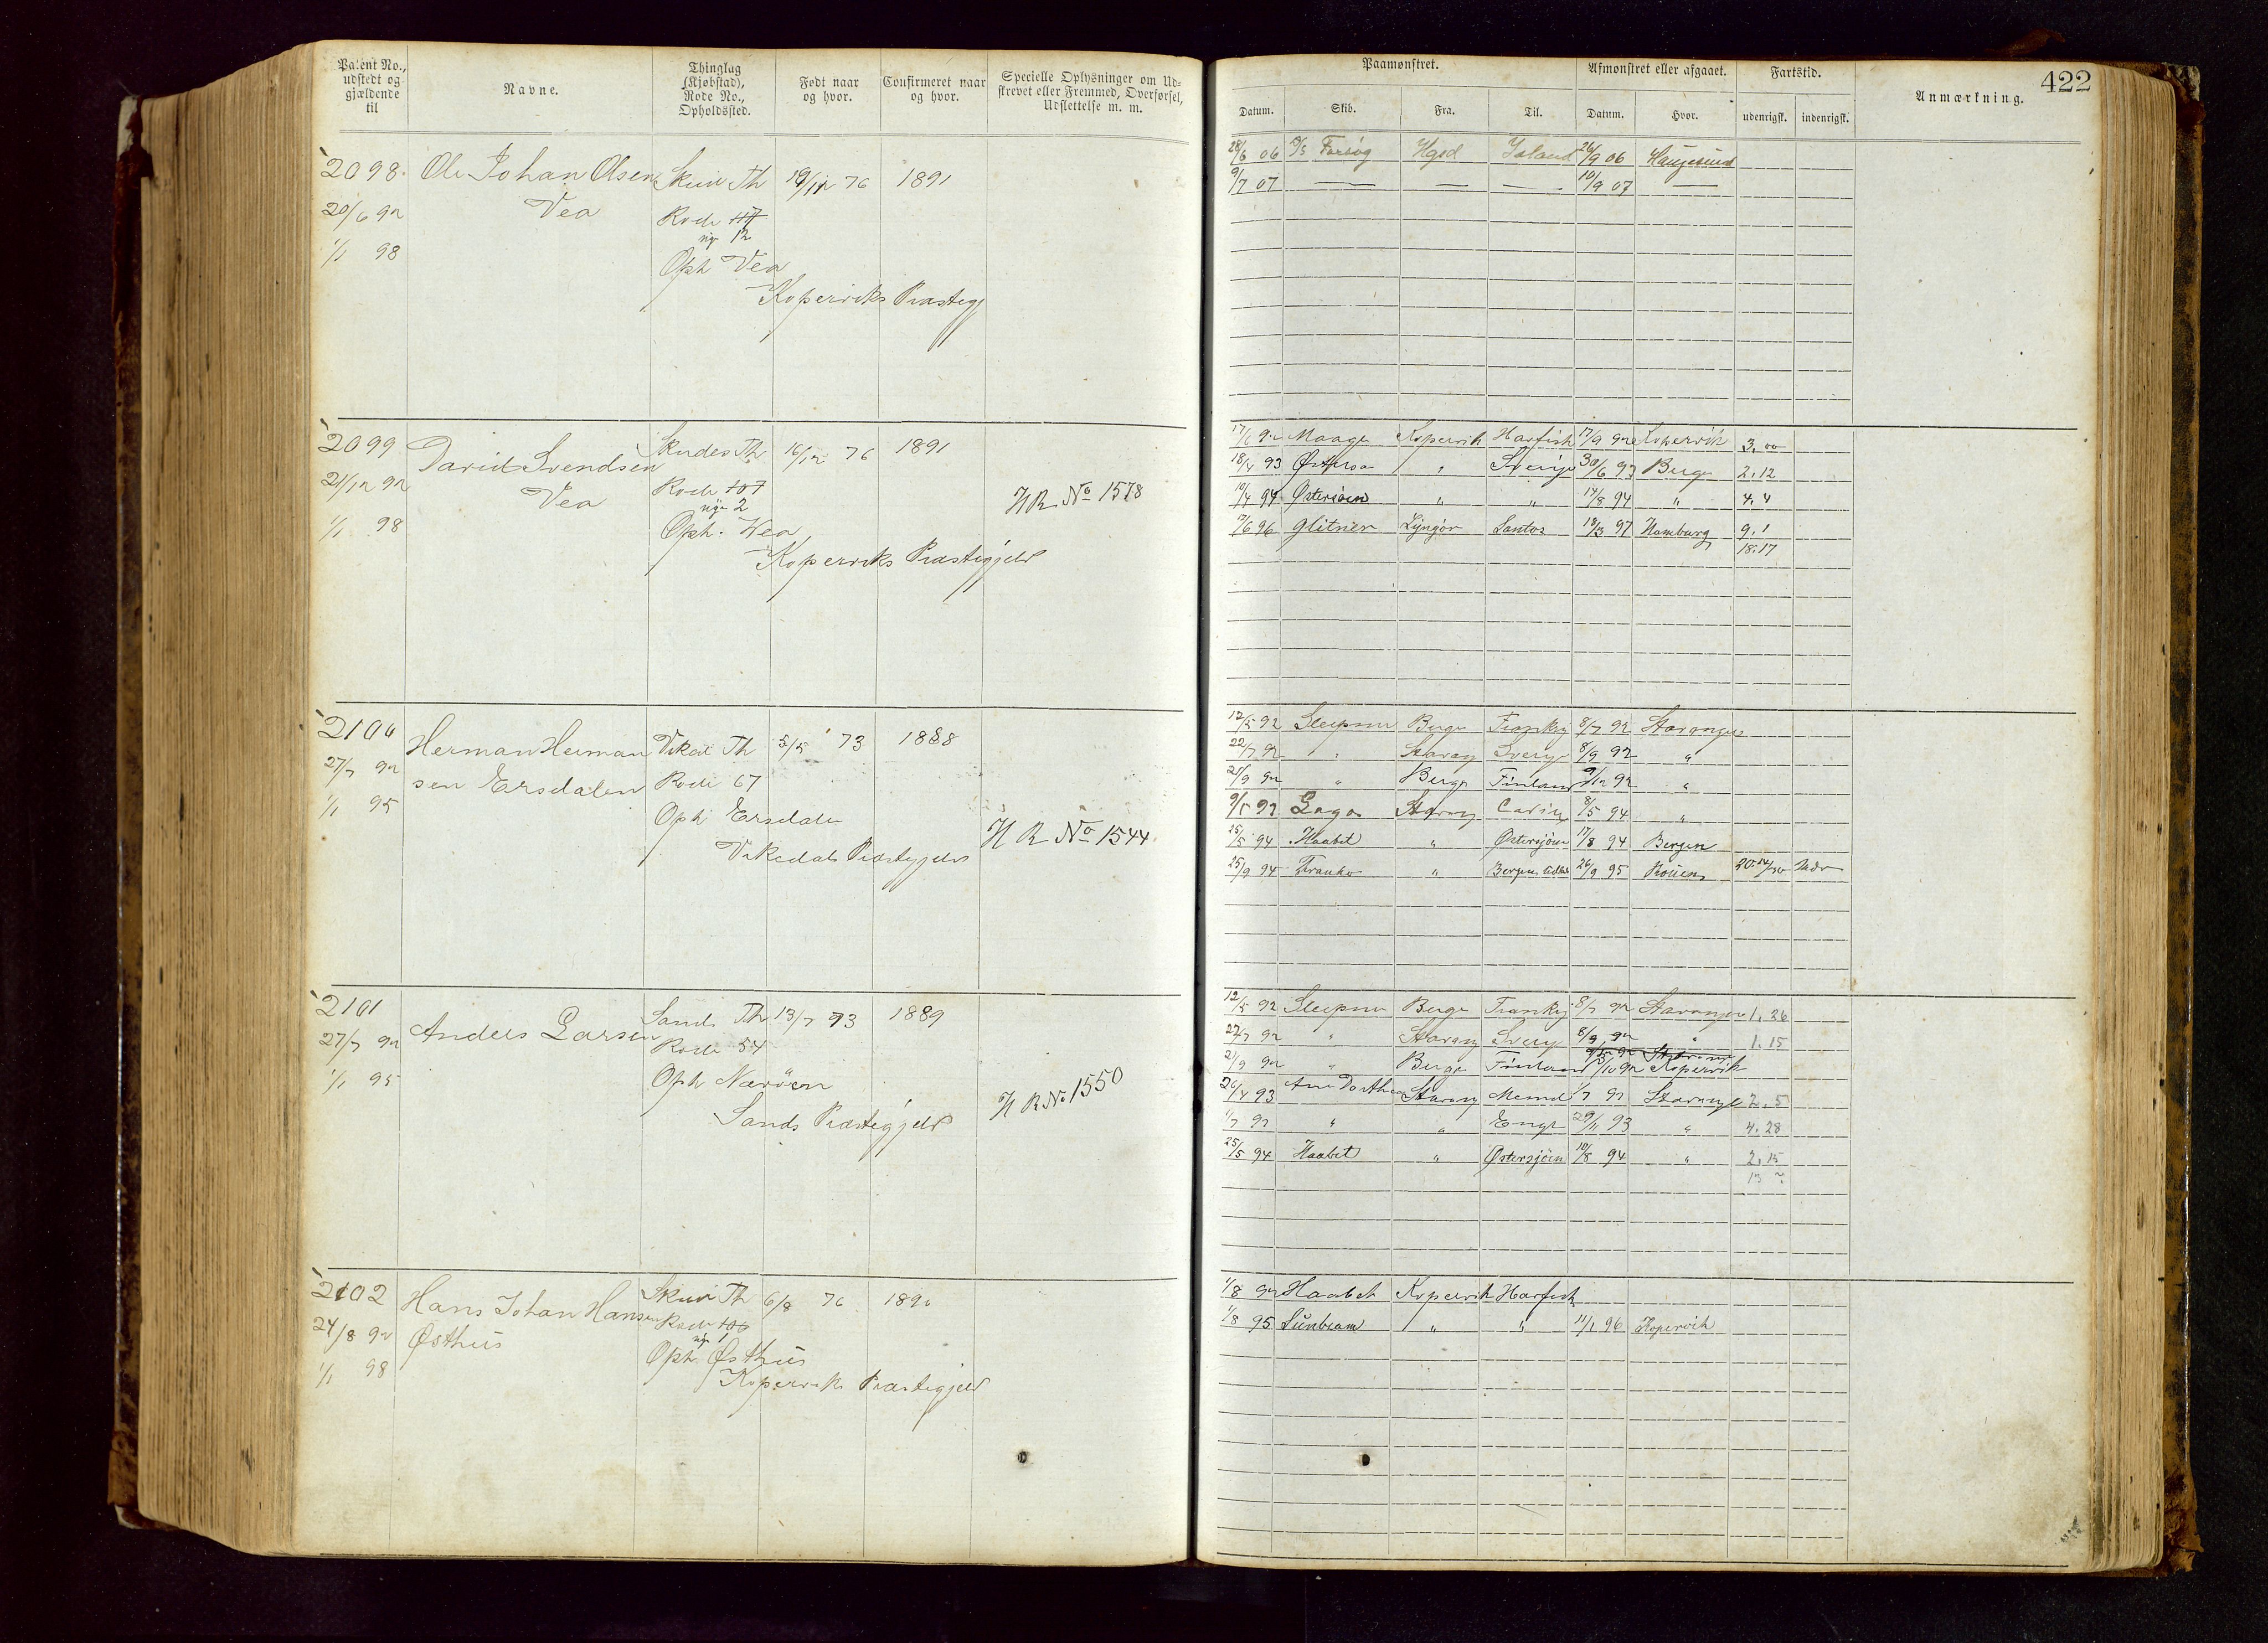 Patent No., udstedt og gjældende til
Navne.
Thinglag (Kjøbstad), Rode No., Opholdssted.
Født naar og hvor.
Confirmeret naar og hvor.
Specielle Oplysninger om Udskrevet eller Fremmed, Overførsel, Udslettelse m. m.
Paamønstret.
Afmønstret eller afgaaet.
Fartstid.
Anmærkning.
422
Datum. Skib. Fra. Til. Datum. Hvor. udenrigsk. indenrigsk.
2098. Ole Johan Olsen Skud Th 19/12 76 1891
20/6 92 Vea Rode 117
ny 12
1/1 98 Oph Vea
Koperviks Præstegj
28/6 06 Forsøg Hgsd Island 26/9 06 Haugesund
9/7 07 — — — 10/9 07 —
2099 David Svendsen Skudes Th 16/12 76 1891
21/12 92 Vea Rode 107
ny 2 H R. No 1578
1/1 98 Oph. Vea
Koperviks Præstegjeld
17/6 92 Maage Kopervik Havfisk 17/9 92 Kopervik 3. 00
18/4 93 Østersø " Sverige 30/6 93 Berge 2. 12
10/4 94 Østersøen " " 14/8 94 " 4. 4
17/6 96 Glitner Lyngør Santos 18/3 97 Hamburg 9. 1
18. 17
2100 Herman Herman Vikedal Th 5/5 73 1888
27/7 92 sen Ersdalen Rode 67
1/1 95 Oph Ersdalen H R No 1544
Vikedals Præstegjeld
12/5 92 Sleipner Berge Frankrig 8/7 92 Stavanger
22/7 92 " Stavang Sverig 8/9 92 "
21/9 92 " Berge Finland 9/12 92 "
9/5 93 Saga Stavang 8/5 94 "
25/5 94 Haabet " Østersjøen 17/8 94 Bergen
25/9 94 Franko " Bergen 26/9 95 Rouen 20. 14/30 Mdr
2101 Anders Larsen Sands Th 13/7 73 1889
27/7 92 Rode 54
1/1 95 Oph Nærøen H R No 1550
Sands Præstegjeld
12/5 92 Sleipner Berge Frankrig 8/7 92 Stavanger 1. 26
27/7 92 " Stavang Sverig 8/9 92 " 1. 15
21/9 92 " Berge Finland 3/10 92 Kopervik
26/4 93 Ane Dorthea Stavang 1/7 93 Stavange 2. 5
1/7 93 " " Engl 29/11 93 " 4. 28
25/5 94 Haabet " Østersjøen 10/8 94 " 2. 15
2102 Hans Johan Hansen Skud Th 6/8 76 1891
24/8 92 Østhus Rode 106
ny 1
1/1 98 Oph. Østhus
Koperviks Præstegjeld
1/8 92 Haabet Kopervik Havfisk
1/8 95 Sunbeam " " 11/1 96 Kopervik